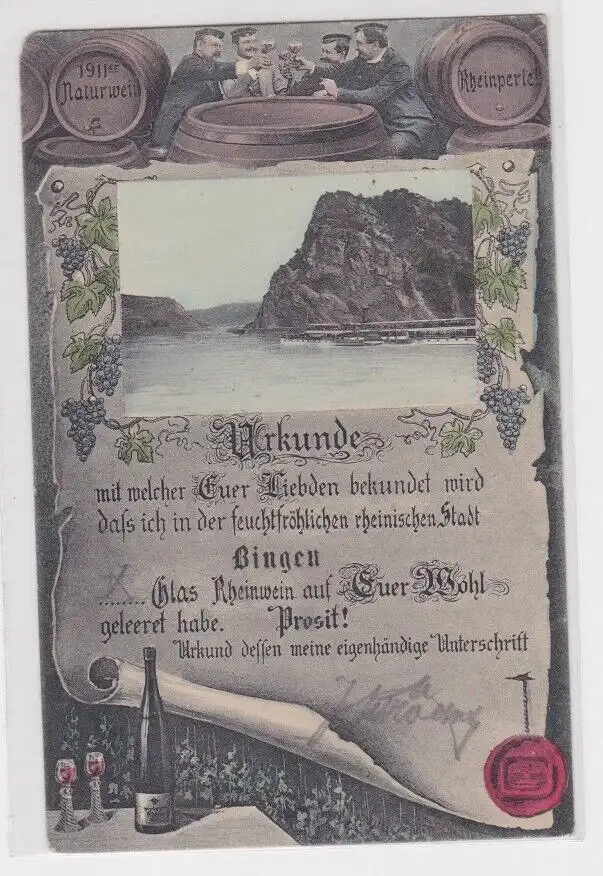 1911er
Naturwein
Rheinperle!
Urkunde
mit welcher Euer Liebden bekundet wird
dass ich in der feuchtfröhlichen rheinischen Stadt
Bingen
X
........ Glas Rheinwein auf Euer Wohl
geleeret habe. Prosit!
Urkund dessen meine eigenhändige Unterschrift